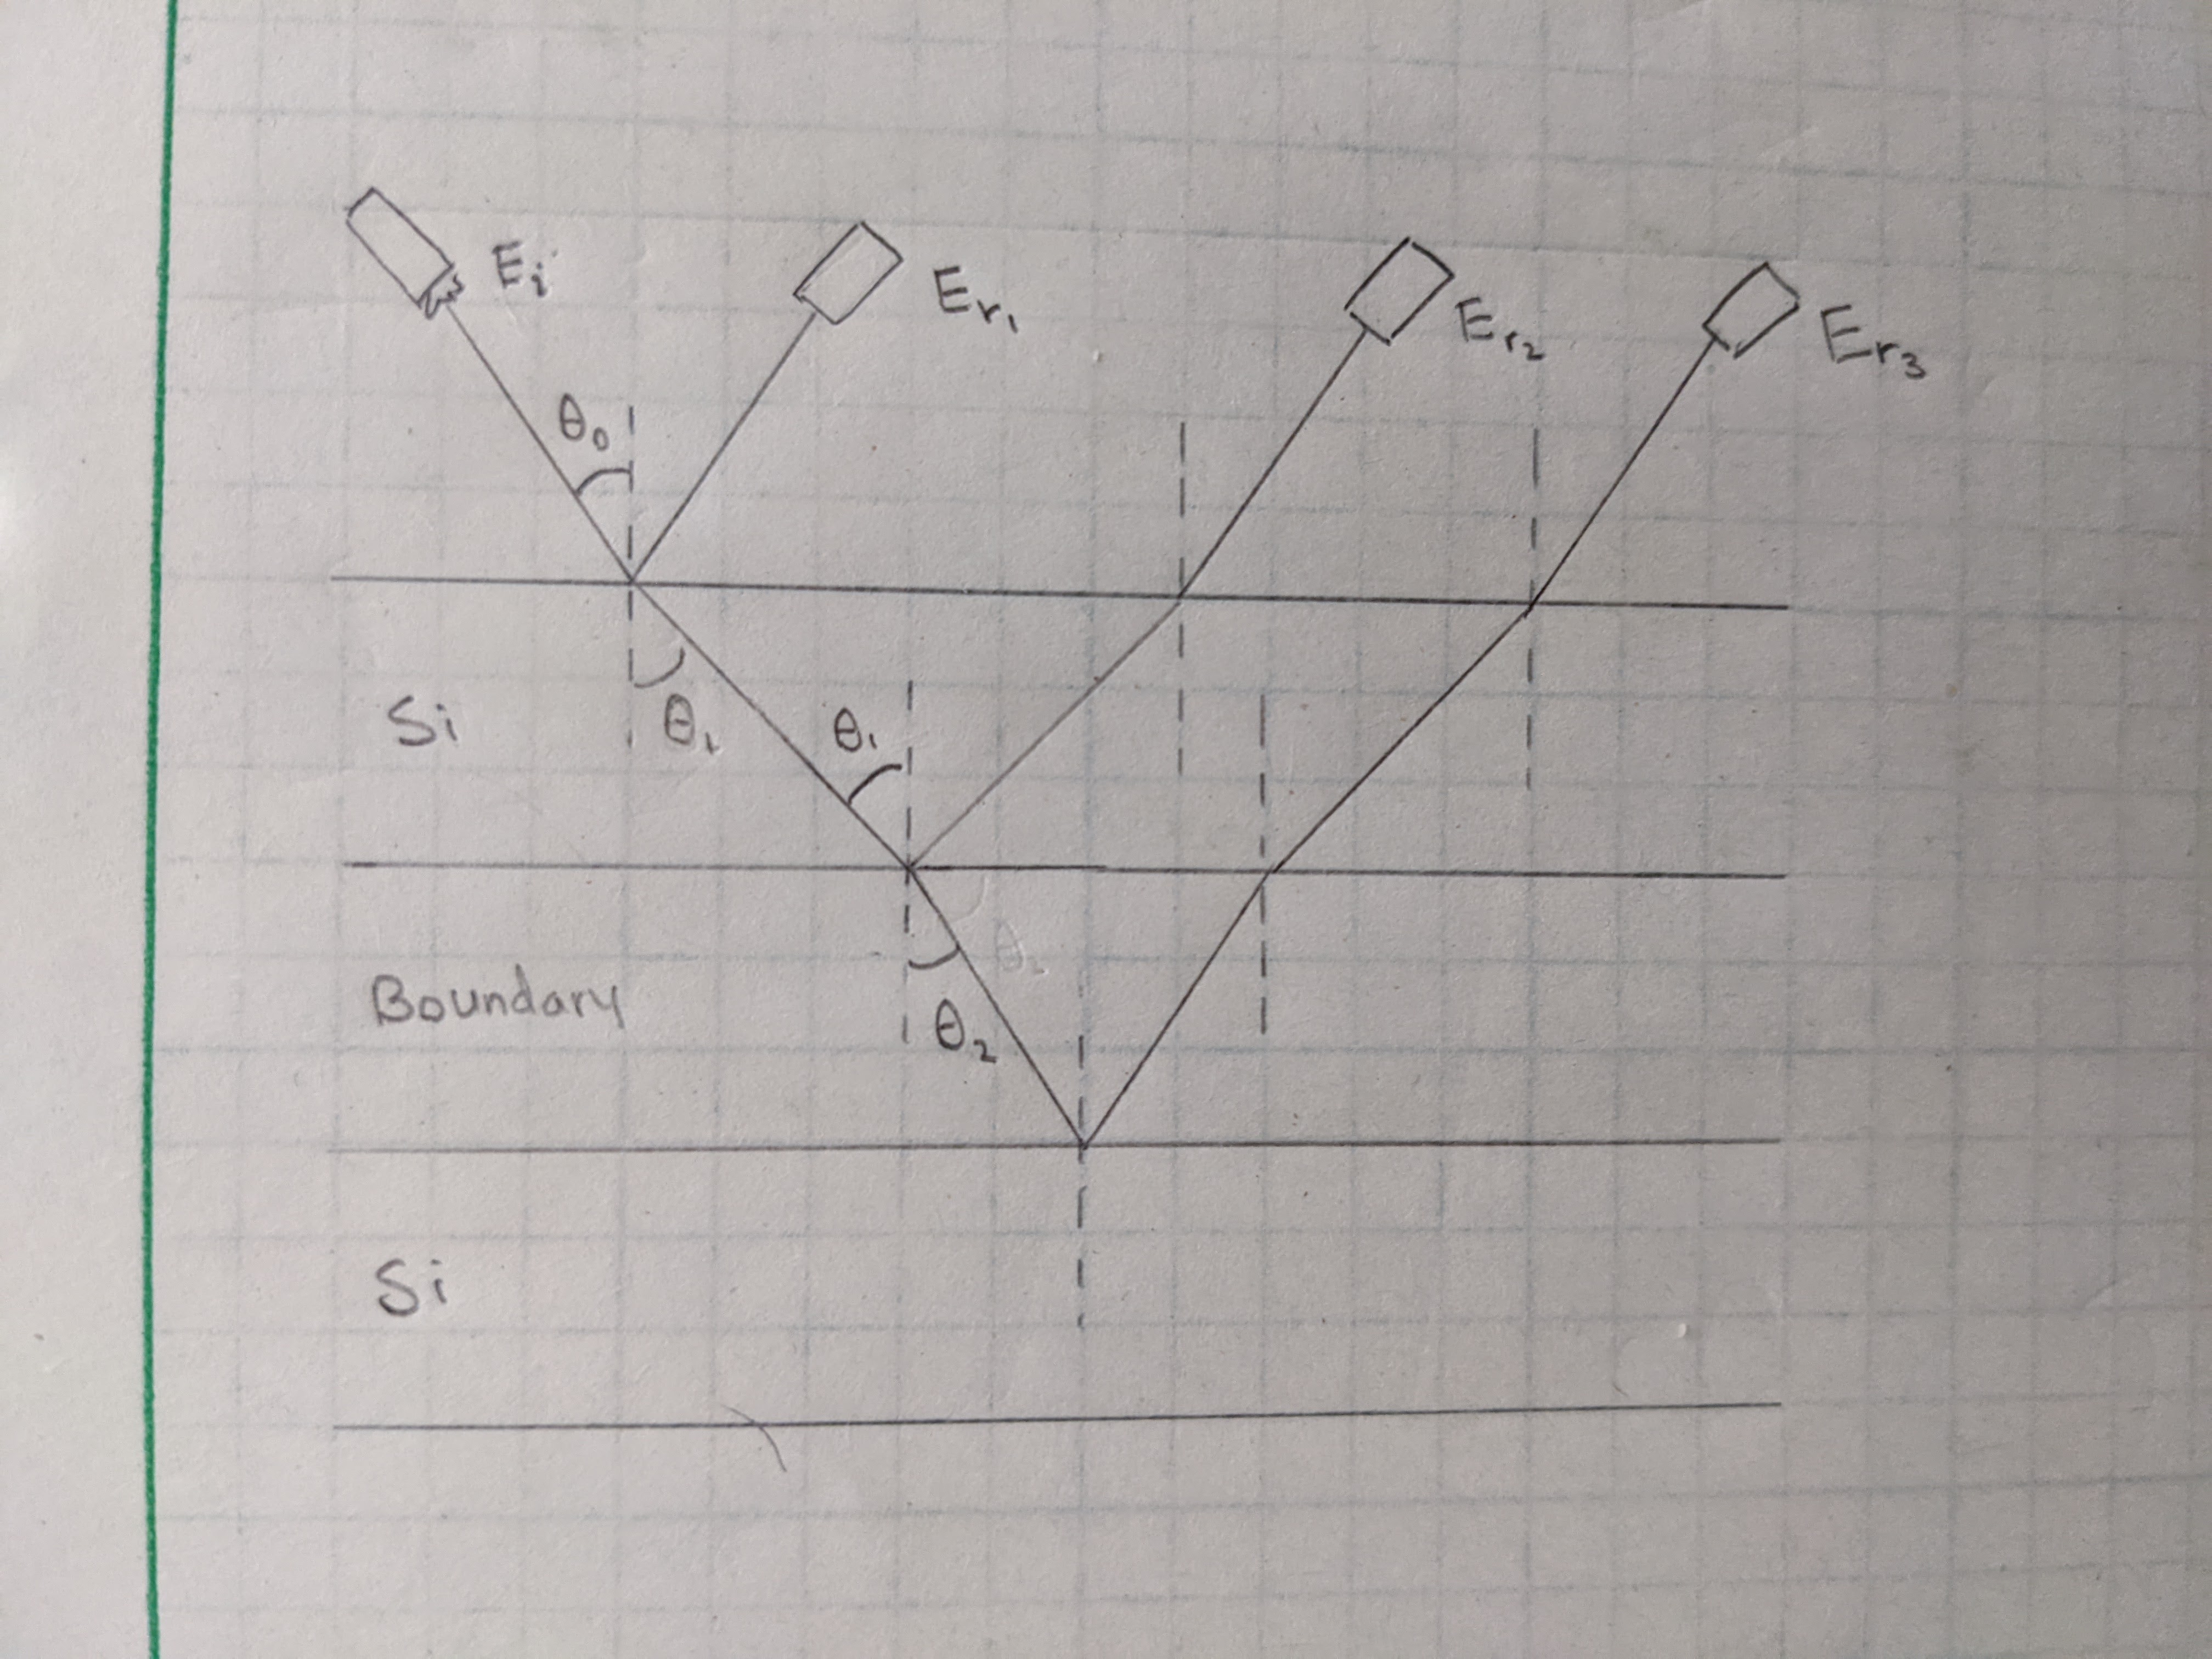 Ei
Er1
Er2
Er3
θ0
Si
θ1
θ1
Boundary
θ2
Si